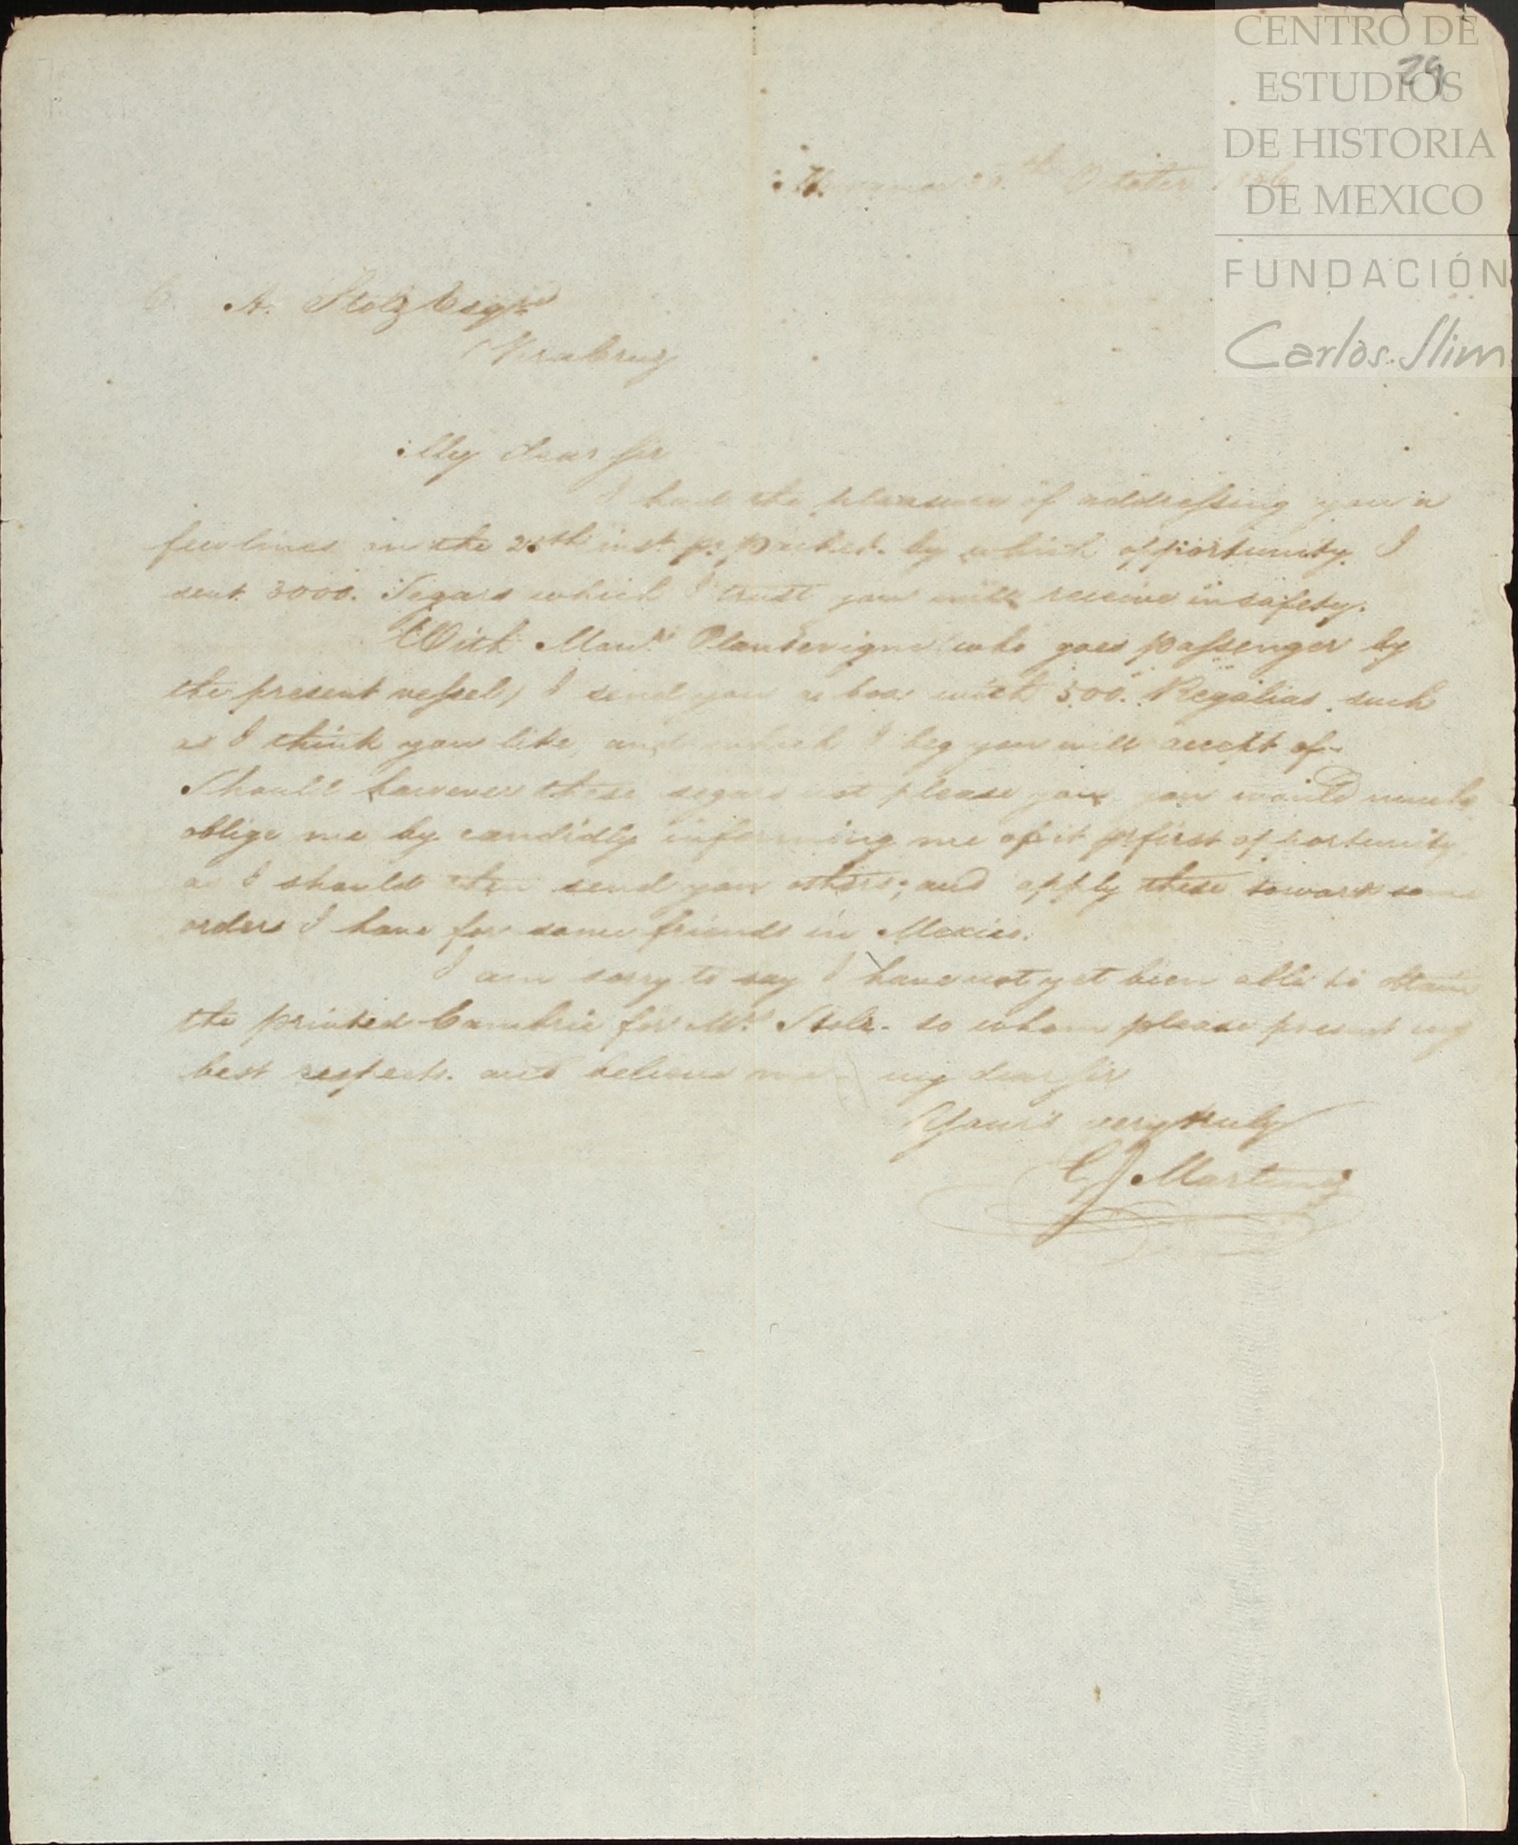 CENTRO DE
ESTUDIOS
DE HISTORIA
DE MEXICO
FUNDACIÓN
Carlos Slim
29
October
C. A. Stolz Esqre
VeraCruz
My dear Sir
I had the pleasure of addressing you a
few lines on the 25th inst. pr packet. by which opportunity. I
sent 3000. Segars which I trust you will receive in safety.
With Monr. Plantevigne (who goes passenger by
the present vessel) I send you a box with 500. Regalias such
as I think you like, and which I beg you will accept of.
Should however these segars not please you you would much
oblige me by candidly informing me of it pr first opportunity,
as I should then send you others; and apply these toward some
orders I have for some friends in Mexico.
I am sorry to say I have not yet been able to obtain
the printed Cambric for Mrs. Stolz - to whom please present my
best respects. and believe me - my dear Sir
Yours very truly
C J Martinez